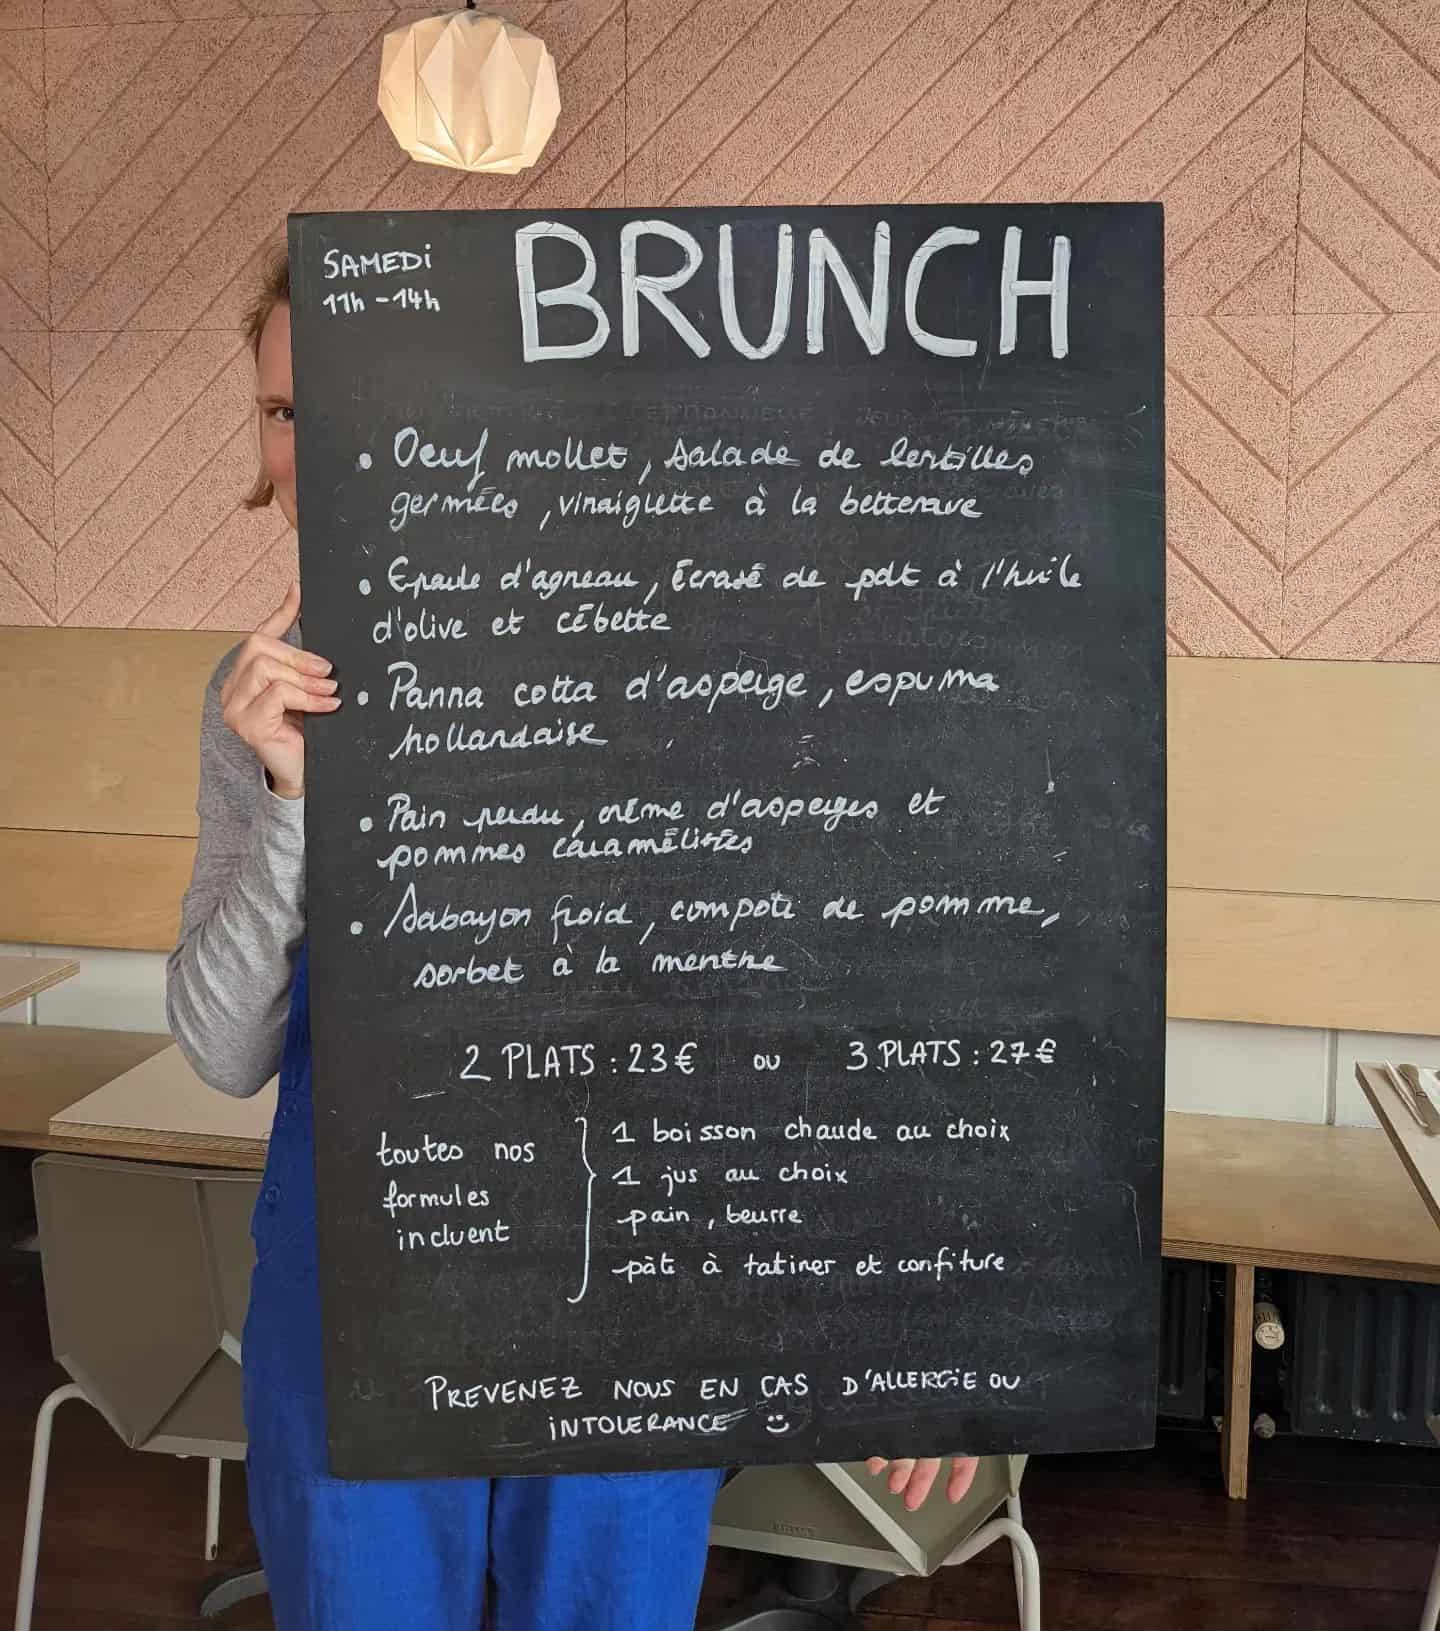 SAMEDi
11h - 14h
BRUNCH
• Oeuf mollet, salade de lentilles
germées, vinaigrette à la betterave
• Epaule d'agneau, écrasé de pdt à l'huile
d'olive et cébette
• Panna cotta d'asperge, espuma
hollandaise
• Pain perdu, crème d'asperges et
pommes caramélisées
• Sabayon froid, compote de pomme,
sorbet à la menthe
2 PLATS : 23€ ou 3 PLATS : 27€
toutes nos
formules
incluent
1 boisson chaude au choix
1 jus au choix
pain, beurre
pâte à tatiner et confiture
PREVENEZ NOUS EN CAS D'ALLERGiE OU
iNTOLERANCE